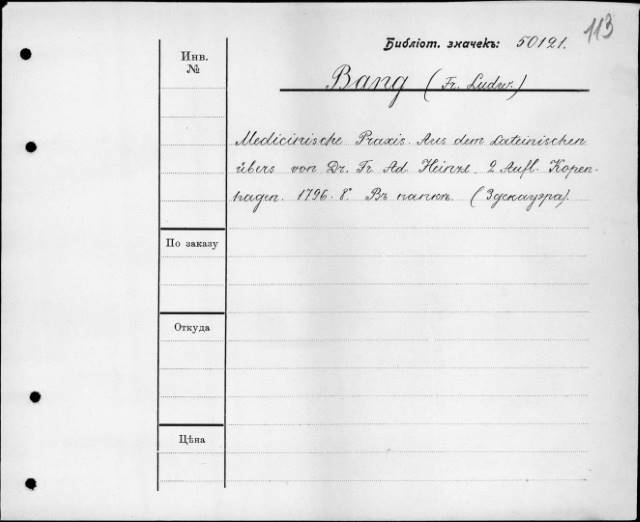 113
Библіот. значекъ: 50121.
Инв.
№
Bang (Fr. Ludw.)
Medicinische Praxis. Aus dem Lateinischen
übers von Dr. Fr. Ad. Heinze. 2 Aufl. Kopen-
hagen. 1796. 8°. Въ папкѣ. (Здекауэра).
По заказу
Откуда
Цѣна